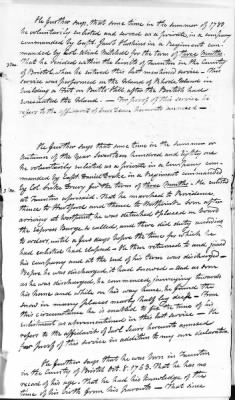 He further says, that some time in the summer of 1780
he voluntarily enlisted and served as a private, in a company
commanded by Capt. Hoskins in a Regiment com-
manded by Col. Abiel Mitchell for the term of three Months
3 mo
That he resided within the limits of Taunton in the County
of Bristol, when he entered this last mentioned service - This
service was performed on the Island of Rhode Island in
building a Fort on Butts Hill after the British had
evacuated the Island. - For proof of this service he
refers to the affidavit of Levi hereunto annexed -
He further says that some time in the summer or
Autumn of the Year Seventeen hundred and eighty one
he voluntarily enlisted as a private in a Company com-
manded by Capt. in a Regiment commanded
by Col. Drury for the term of three Months - He enlisted
3 mo
at Taunton aforesaid. That he marched to Providence
thence to Hartford and thence to Westpoint. Soon after
arriving at Westpoint he was detached & placed on board
the Express Barge so called, and there did duty according
to orders, until a few days before the time for which he
had enlisted had elapsed - He then returned to and joined
his company and at the end of his term was discharged -
Before he was discharged, it had snowed - and as soon
as he was discharged, he commenced journeying towards
his home and while on his way home, he found the
snow in many places nearly half leg deep - From
this circumstance he is enabled to fix the time of his
enlistment as abovementioned in this last service - He
refers to the affidavit of Levi hereunto annexed
for proof of this service in addition to my own declaration
He further says that he was born in Taunton
in the County of Bristol Oct. 8. 1763. That he has no
record of his age. That he had his knowledge of the
time of his birth from his parents - that since